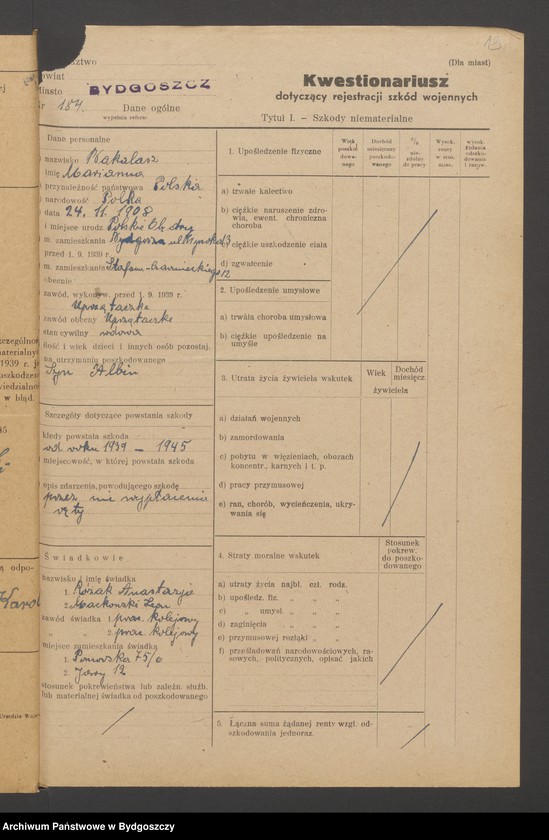 (Dla miast)
Miasto BYDGOSZCZ
184.
Dane ogólne
Kwestionariusz
dotyczący rejestracji szkód wojennych
Tytuł I. – Szkody niematerialne
Dane personalne
nazwisko Bakalarz
imię Marianna
przynależność państwowa Polska
narodowość Polka
data 24. 11. 1908
i miejsce urodz. Polskie
m. zamieszkania Bydgoszcz ul.
przed 1. 9. 1939 r.
m. zamieszkania Stefana Czarnieckiego 12
obecnie
zawód, wykonyw. przed 1. 9. 1939 r.
Uprzątaczka
zawód obecny Uprzątaczka
stan cywilny wdowa
ilość i wiek dzieci i innych osób pozostaj.
na utrzymaniu poszkodowanego
Syn Albin
Szczegóły dotyczące powstania szkody
kiedy powstała szkoda
od roku 1939 – 1945
miejscowość, w której powstała szkoda
opis zdarzenia, powodującego szkodę
przez nie wypłacenie
renty
Świadkowie
nazwisko i imię świadka
1. Rózak Anastazja
2. Maćkowski
zawód świadka 1. prac. kolejowy
„ „ 2. prac. kolejowy
miejsce zamieszkania świadka
1. Pomorska 75/
2. Jary 12
stosunek pokrewieństwa lub zależn. służb.
lub materialnej świadka od poszkodowanego
1. Upośledzenie fizyczne
Wiek poszkodowanego
Dochód miesięczny poszkodowanego
% niezdolny do pracy
a) trwałe kalectwo
b) ciężkie naruszenie zdrowia, ewent. chroniczna
choroba
c) ciężkie uszkodzenie ciała
d) zgwałcenie
2. Upośledzenie umysłowe
a) trwała choroba umysłowa
b) ciężkie upośledzenie na
umyśle
3. Utrata życia żywiciela wskutek
Wiek Dochód miesięcz.
żywiciela
a) działań wojennych
b) zamordowania
c) pobytu w więzieniach, obozach
koncentr., karnych i t. p.
d) pracy przymusowej
e) ran, chorób, wycieńczenia, ukry-
wania się
4. Straty moralne wskutek
Stosunek
pokrew.
do poszko-
dowanego
a) utraty życia najbl. czł. rodz.
b) upośledz. fiz. „ „ „
c) „ umysł. „ „ „
d) zaginięcia „ „ „
e) przymusowej rozłąki „ „
f) prześladowań narodowościowych, ra-
sowych, politycznych, opisać jakich
5. Łączna suma żądanej renty wzgl. od-
szkodowania jednoraz.
Archiwum Państwowe w Bydgoszczy